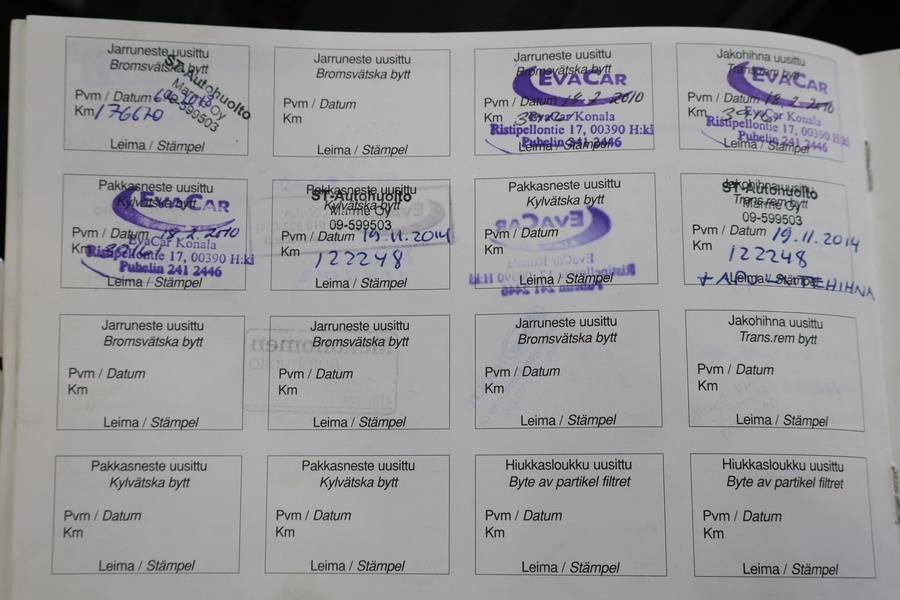 Jarruneste uusittu
Bromsvätska bytt
ST-Autohuolto
Marme Oy
09-599503
Pvm / Datum
Km 176670
Leima / Stämpel
Jarruneste uusittu
Bromsvätska bytt
Pvm / Datum
Km
Leima / Stämpel
Jarruneste uusittu
Bromsvätska bytt
EVACAR
Pvm / Datum 18.2.2010
Km
EvaCar Konala
Ristipellontie 17, 00390 H:ki
Puhelin 241 2446
Leima / Stämpel
Jakohihna uusittu
Trans.rem bytt
EVACAR
Pvm / Datum 18.2.2010
Km
EvaCar Konala
Ristipellontie 17, 00390 H:ki
Puhelin 241 2446
Leima / Stämpel
Pakkasneste uusittu
Kylvätska bytt
EVACAR
Pvm / Datum 18.2.2010
Km
EvaCar Konala
Ristipellontie 17, 00390 H:ki
Puhelin 241 2446
Leima / Stämpel
Pakkasneste uusittu
Kylvätska bytt
ST-Autohuolto
Marme Oy
09-599503
Pvm / Datum 19.11.2014
Km 122248
Leima / Stämpel
Pakkasneste uusittu
Kylvätska bytt
EVACAR
Pvm / Datum
Km
EvaCar Konala
Ristipellontie 17, 00390 H:ki
Puhelin 241 2446
Leima / Stämpel
Jakohihna uusittu
Trans.rem bytt
ST-Autohuolto
Marme Oy
09-599503
Pvm / Datum 19.11.2014
Km 122248
Leima / Stämpel
Jarruneste uusittu
Bromsvätska bytt
Pvm / Datum
Km
Leima / Stämpel
Jarruneste uusittu
Bromsvätska bytt
Pvm / Datum
Km
Leima / Stämpel
Jarruneste uusittu
Bromsvätska bytt
Pvm / Datum
Km
Leima / Stämpel
Jakohihna uusittu
Trans.rem bytt
Pvm / Datum
Km
Leima / Stämpel
Pakkasneste uusittu
Kylvätska bytt
Pvm / Datum
Km
Leima / Stämpel
Pakkasneste uusittu
Kylvätska bytt
Pvm / Datum
Km
Leima / Stämpel
Hiukkasloukku uusittu
Byte av partikel filtret
Pvm / Datum
Km
Leima / Stämpel
Hiukkasloukku uusittu
Byte av partikel filtret
Pvm / Datum
Km
Leima / Stämpel